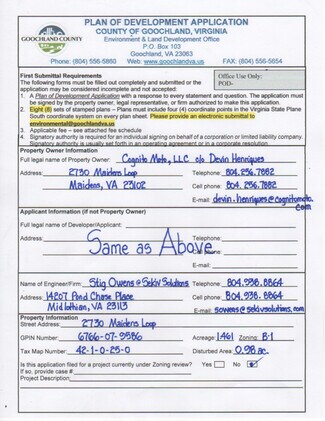 GOOCHLAND COUNTY
PLAN OF DEVELOPMENT APPLICATION
COUNTY OF GOOCHLAND, VIRGINIA
Environment & Land Development Office
P.O. Box 103
Goochland, VA 23063
Phone: (804) 556-5860 Web: www.goochlandva.us FAX: (804) 556-5654
First Submittal Requirements
The following forms must be filled out completely and submitted or the
application may be considered incomplete and not accepted:
Office Use Only:
POD-
1. A Plan of Development Application with a response to every statement and question. The application must
be signed by the property owner, legal representative, or firm authorized to make this application.
2. Eight (8) sets of stamped plans – Plans must include four (4) coordinate points in the Virginia State Plane
South coordinate system on every plan sheet. Please provide an electronic submittal to
environmental@goochlandva.us
3. Applicable fee – see attached fee schedule
4. Signatory authority is required for an individual signing on behalf of a corporation or limited liability company.
Signatory authority is usually set forth in an operating agreement or in a corporate resolution.
Property Owner Information
Full legal name of Property Owner: Cognito Moto, LLC c/o Devin Henriques
Address: 2730 Maidens Loop Telephone: 804.256.7882
Maidens, VA 23102 Cell phone: 804.256.7882
E-mail: devin.henriques@cognitomoto.com
Applicant Information (if not Property Owner)
Full legal name of Developer/Applicant:
Address: Same as Above Telephone:
Cell phone:
E-mail:
Name of Engineer/Firm: Stig Owens @ Sekiv Solutions Telephone: 804.938.8864
Address: 14207 Pond Chase Place Cell phone: 804.938.8864
Midlothian, VA 23113 E-mail: sowens@sekivsolutions.com
Property Information
Street Address: 2730 Maidens Loop
GPIN Number: 6766-07-9586 Acreage: 1.461 Zoning: B-1
Tax Map Number: 42-1-0-25-0 Disturbed Area: 0.98 ac.
Is this application filed for a project currently under Zoning review? Yes No
If so, provide case #
Project Description: